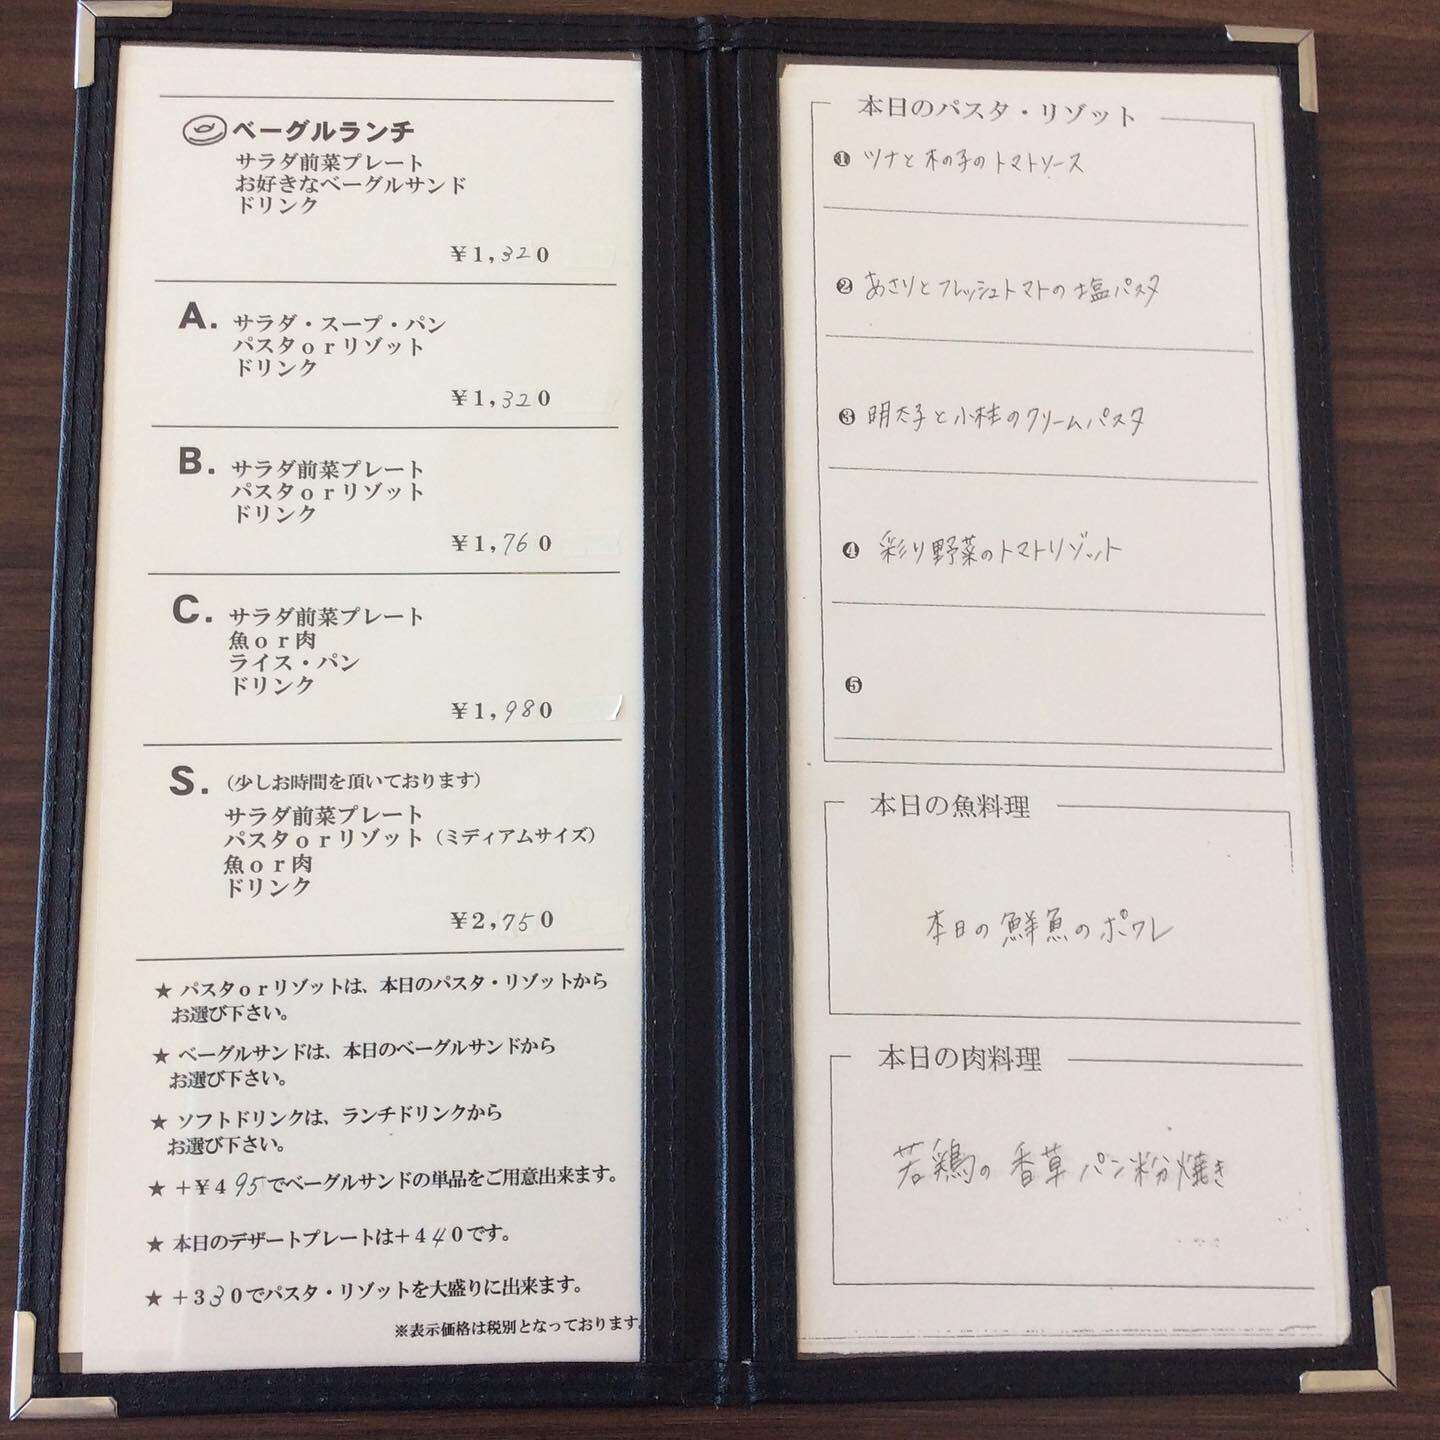 ベーグルランチ
サラダ前菜プレート
お好きなベーグルサンド
ドリンク
¥1,320
A. サラダ・スープ・パン
パスタorリゾット
ドリンク
¥1,320
B. サラダ前菜プレート
パスタorリゾット
ドリンク
¥1,760
C. サラダ前菜プレート
魚or肉
ライス・パン
ドリンク
¥1,980
S. (少しお時間を頂いております)
サラダ前菜プレート
パスタorリゾット(ミディアムサイズ)
魚or肉
ドリンク
¥2,750
★ パスタorリゾットは、本日のパスタ・リゾットから
お選び下さい。
★ ベーグルサンドは、本日のベーグルサンドから
お選び下さい。
★ ソフトドリンクは、ランチドリンクから
お選び下さい。
★ +¥495でベーグルサンドの単品をご用意出来ます。
★ 本日のデザートプレートは+440です。
★ +330でパスタ・リゾットを大盛りに出来ます。
※表示価格は税別となっております。
本日のパスタ・リゾット
❶ ツナと木の子のトマトソース
❷ あさりとフレッシュトマトの塩パスタ
❸ 明太子と小柱のクリームパスタ
❹ 彩り野菜のトマトリゾット
❺
本日の魚料理
本日の鮮魚のポワレ
本日の肉料理
若鶏の香草パン粉焼き